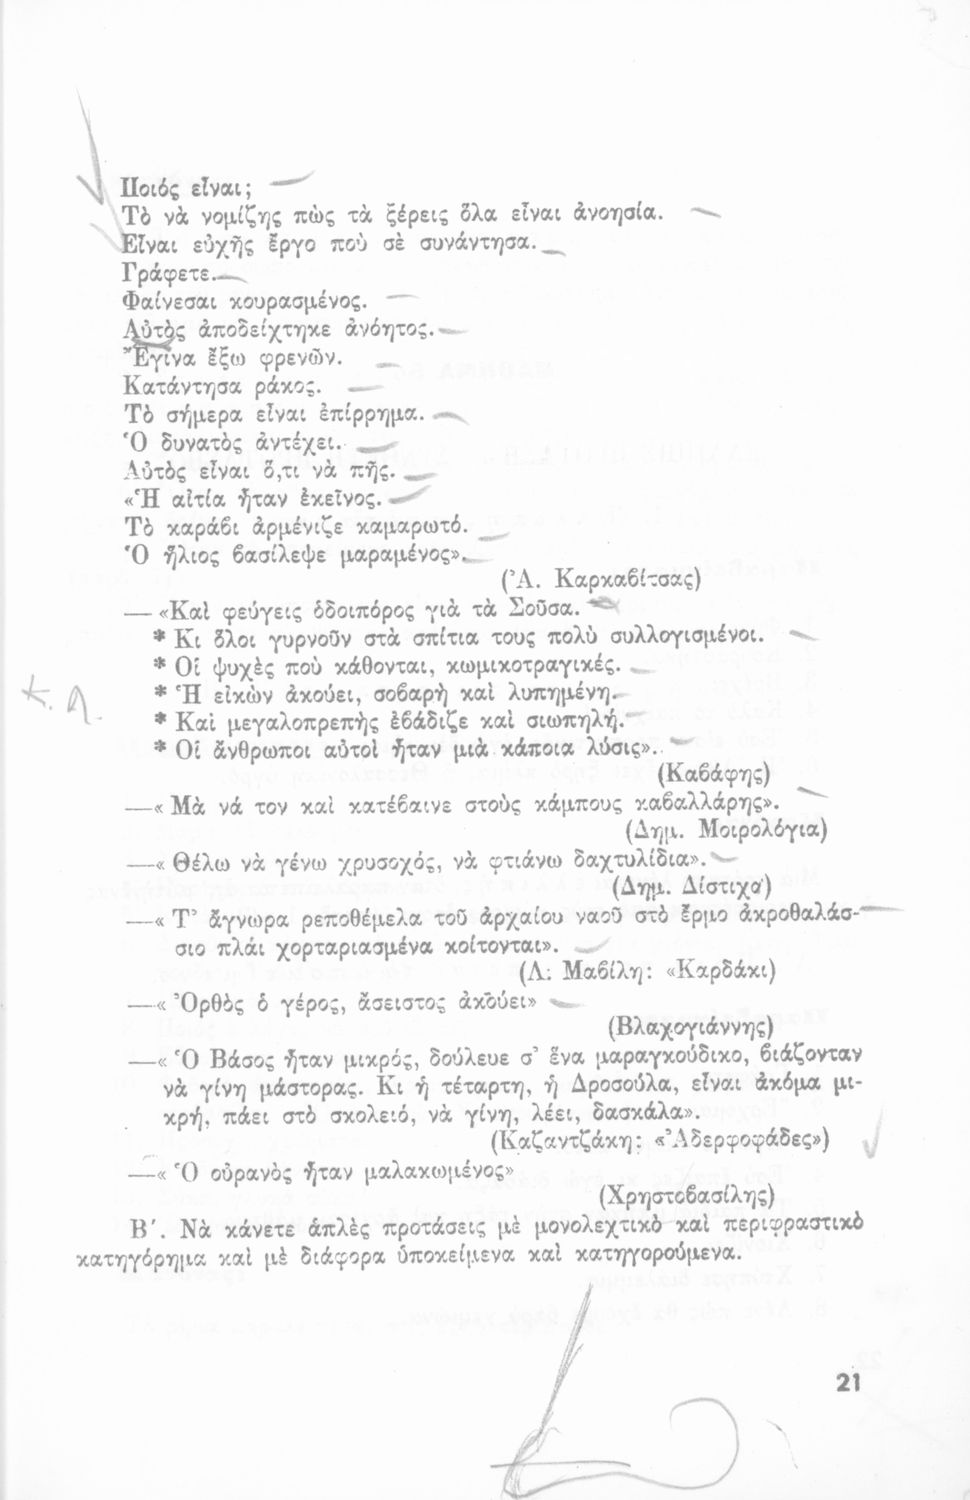 Ποιός εἶναι;
Τὸ νὰ νομίζης πὼς τὰ ξέρεις ὅλα εἶναι ἀνοησία.
Εἶναι εὐχῆς ἔργο ποὺ σὲ συνάντησα.
Γράφετε.
Φαίνεσαι κουρασμένος.
Αὐτὸς ἀποδείχτηκε ἀνόητος.
Ἔγινα ἔξω φρενῶν.
Κατάντησα ράκος.
Τὸ σήμερα εἶναι ἐπίρρημα.
Ὁ δυνατὸς ἀντέχει.
Αὐτὸς εἶναι ὅ,τι νὰ πῆς.
«Ἡ αἰτία ἦταν ἐκεῖνος.
Τὸ καράβι ἀρμένιζε καμαρωτό.
Ὁ ἥλιος βασίλεψε μαραμένος».
(Ἀ. Καρκαβίτσας)
— «Καὶ φεύγεις ὁδοιπόρος γιὰ τὰ Σοῦσα.
* Κι ὅλοι γυρνοῦν στὰ σπίτια τους πολὺ συλλογισμένοι.
* Οἱ ψυχὲς ποὺ κάθονται, κωμικοτραγικές.
* Ἡ εἰκὼν ἀκούει, σοβαρὴ καὶ λυπημένη.
Κ. Π.
* Καὶ μεγαλοπρεπὴς ἐβάδιζε καὶ σιωπηλή.
* Οἱ ἄνθρωποι αὐτοὶ ἦταν μιὰ κάποια λύσις».
(Καβάφης)
—« Μὰ νά τον καὶ κατέβαινε στοὺς κάμπους καβαλλάρης».
(Δημ. Μοιρολόγια)
—« Θέλω νὰ γένω χρυσοχός, νὰ φτιάνω δαχτυλίδια».
(Δημ. Δίστιχα)
—« Τ' ἄγνωρα ρεποθέμελα τοῦ ἀρχαίου ναοῦ στὸ ἔρμο ἀκροθαλάσ-
σιο πλάι χορταριασμένα κοίτονται».
(Λ. Μαβίλη: «Καρδάκι)
—« Ὀρθὸς ὁ γέρος, ἄσειστος ἀκούει»
(Βλαχογιάννης)
—« Ὁ Βάσος ἦταν μικρός, δούλευε σ' ἕνα μαραγκούδικο, βιάζονταν
νὰ γίνη μάστορας. Κι ἡ τέταρτη, ἡ Δροσούλα, εἶναι ἀκόμα μι-
κρή, πάει στὸ σκολειό, νὰ γίνη, λέει, δασκάλα».
(Καζαντζάκη: «Ἀδερφοφάδες»)
—« Ὁ οὐρανὸς ἦταν μαλακωμένος»
(Χρηστοβασίλης)
Β΄. Νὰ κάνετε ἁπλὲς προτάσεις μὲ μονολεχτικὸ καὶ περιφραστικὸ
κατηγόρημα καὶ μὲ διάφορα ὑποκείμενα καὶ κατηγορούμενα.
21